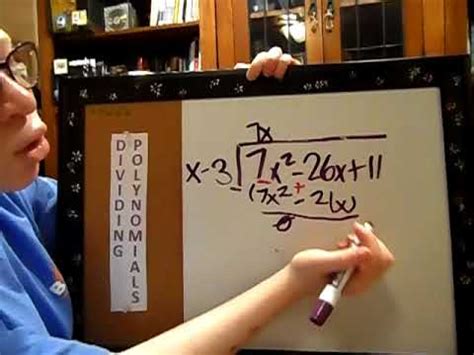 DIVIDING
POLYNOMIALS
7x
x-3 7x² - 26x + 11
- +
(7x² - 21x)
0